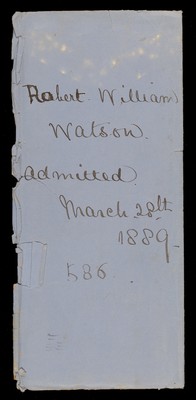 Robert. William
Watson.
admitted.
March 28th
1889.
586.